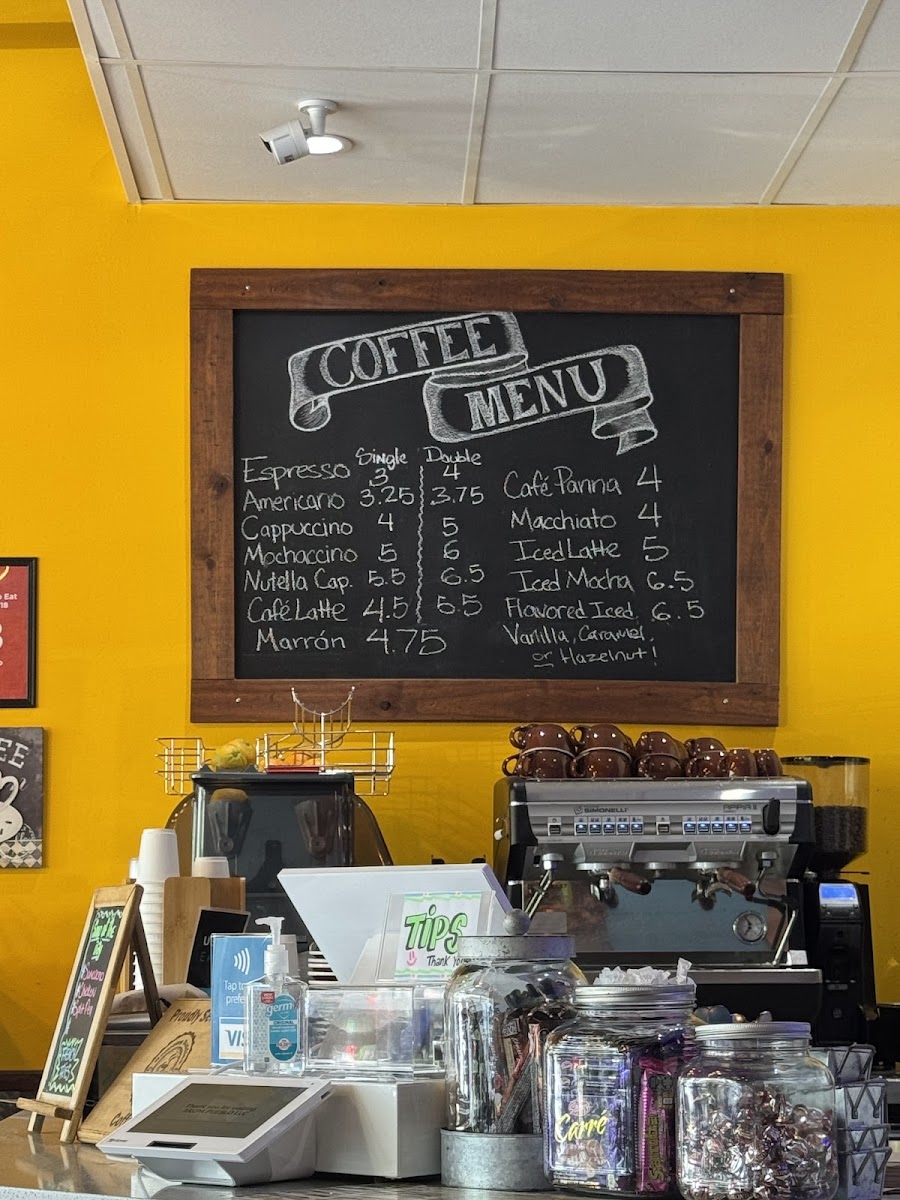 COFFEE
MENU
Single Double
Espresso 3 4
Americano 3.25 3.75
Cappuccino 4 5
Mochaccino 5 6
Nutella Cap. 5.5 6.5
Café Latte 4.5 5.5
Marrón 4.75
Café Panna 4
Macchiato 4
Iced Latte 5
Iced Mocha 6.5
Flavored Iced 6.5
Vanilla, Caramel,
or Hazelnut!
Eat
18
EE
SIMONELLI
APPIA II
TiPS
Thank You
Tap to
VISA
germ
ORIGINAL
Proudly
Carré